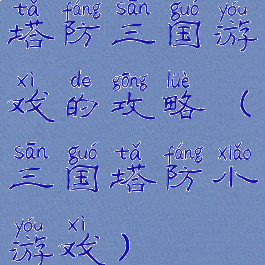 tǎ fáng sān guó yóu
塔防三国游
xì de gōng lüè
戏的攻略（
sān guó tǎ fáng xiǎo
三国塔防小
yóu xì
游戏）